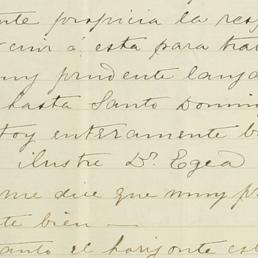 nte propicia la res
cir á esta para tra
muy prudente lanza
hasta Santo Doming
toy enteramente b
ilustre Dr. Egea
me dice que muy p
te bien —
anto el horizonte est